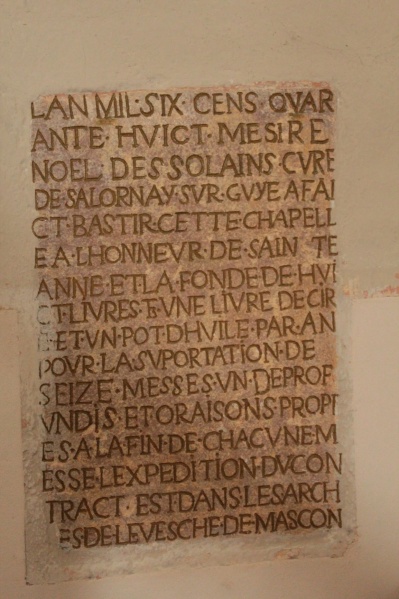 LAN MIL·SIX·CENS·QVAR
ANTE·HVICT·MESIRE
NOEL·DESSOLAINS·CVRE
DE·SALORNAY·SVR·GVYE A FAI
CT·BASTIR·CETTE·CHAPELL
E A·LHONNEVR·DE·SAIN TE
ANNE·ET LA·FONDE DE·HVI
CT·LIVRES·ET·VNE LIVRE DE CIR
E·ET VN·POT·DHVILE·PAR·AN
POVR·LA SVPORTATION·DE
SEIZE·MESSES·VN·DEPROF
VNDIS·ET ORAISONS·PROPI
ES·A·LA FIN·DE·CHACVNE M
ESSE·LEXPEDITION·DV CON
TRACT·EST DANS·LES ARCH
ES·DE LEVESCHE·DE·MASCON